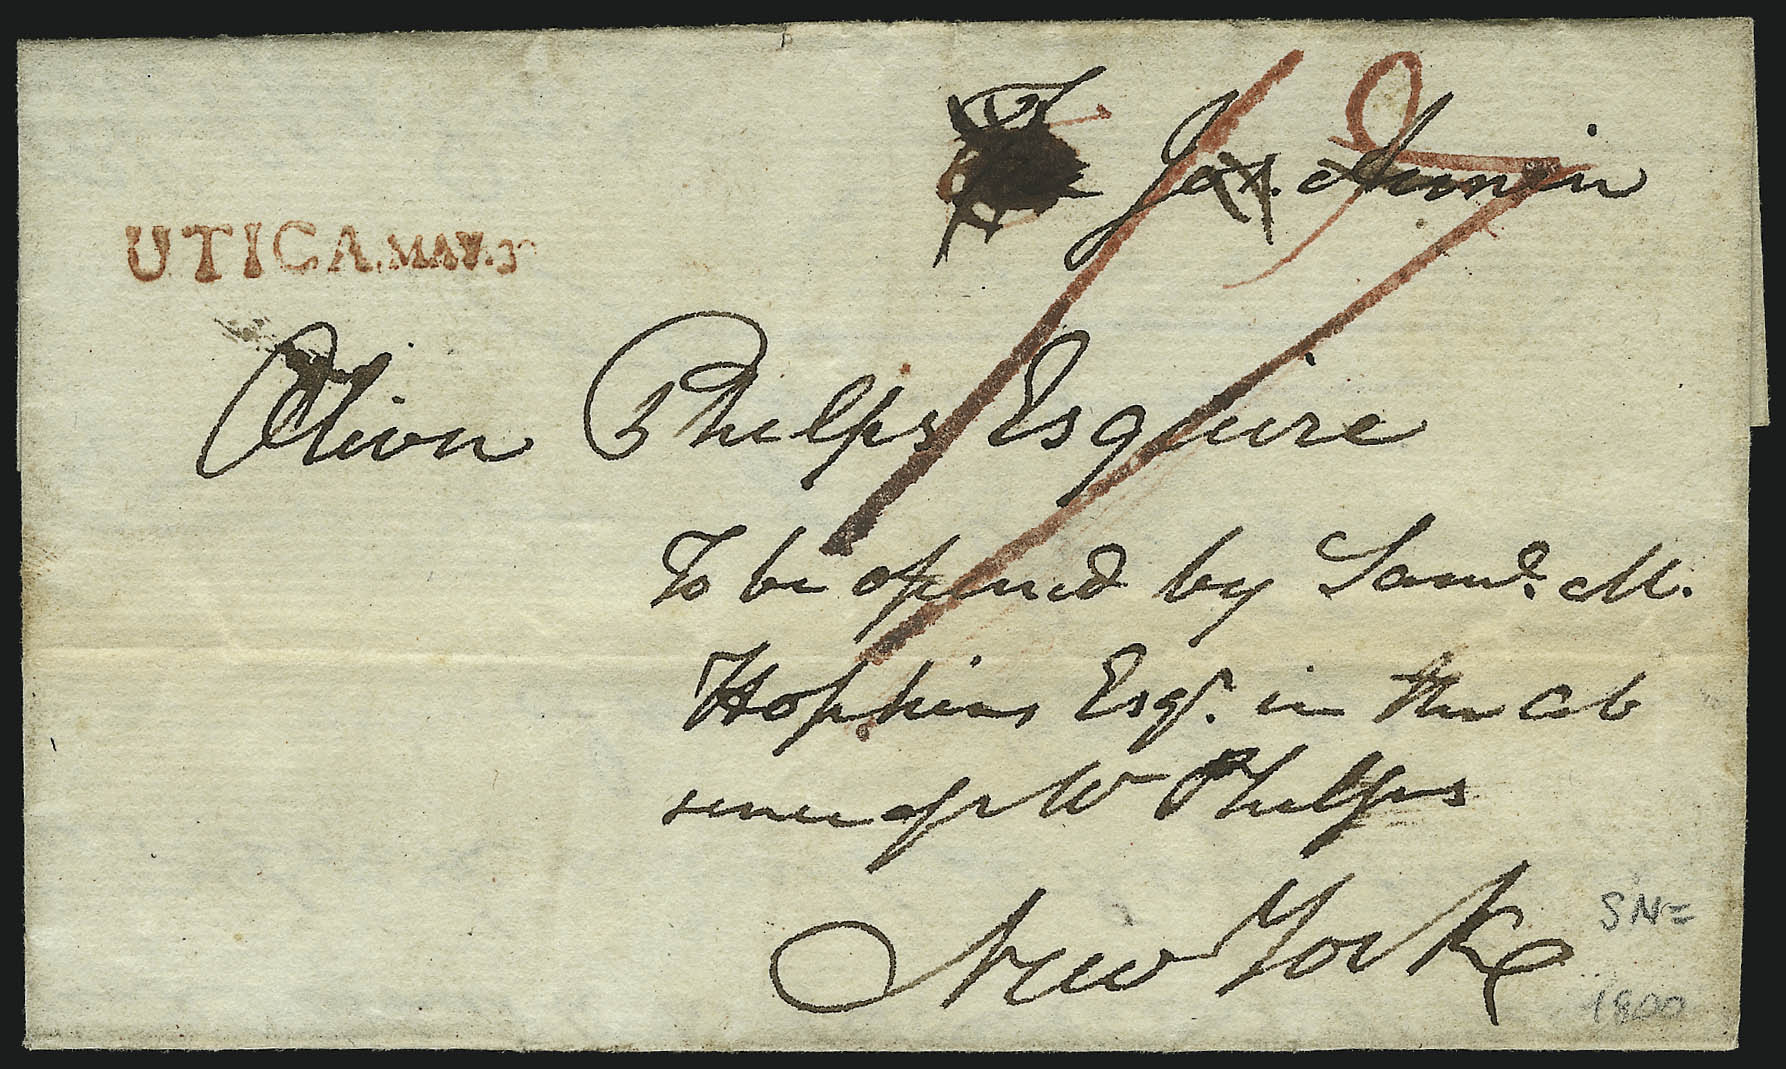 UTICA.MAY.3
Oliver Phelps Esquire
To be opened by Saml. M.
Hopkins Esqr. in the ab
sence of Mr Phelps
New York
SN=
1800